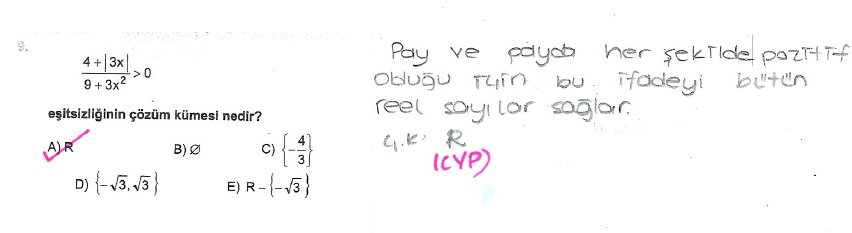 9.
4 + |3x|
9 + 3x² > 0
eşitsizliğinin çözüm kümesi nedir?
A) R B) ∅ C) {-4/3}
D) {-√3, √3} E) R - {-√3}
Pay ve payda her şekilde pozitif
olduğu için bu ifadeyi bütün
reel sayılar sağlar.
Ç.K. R
(CVP)